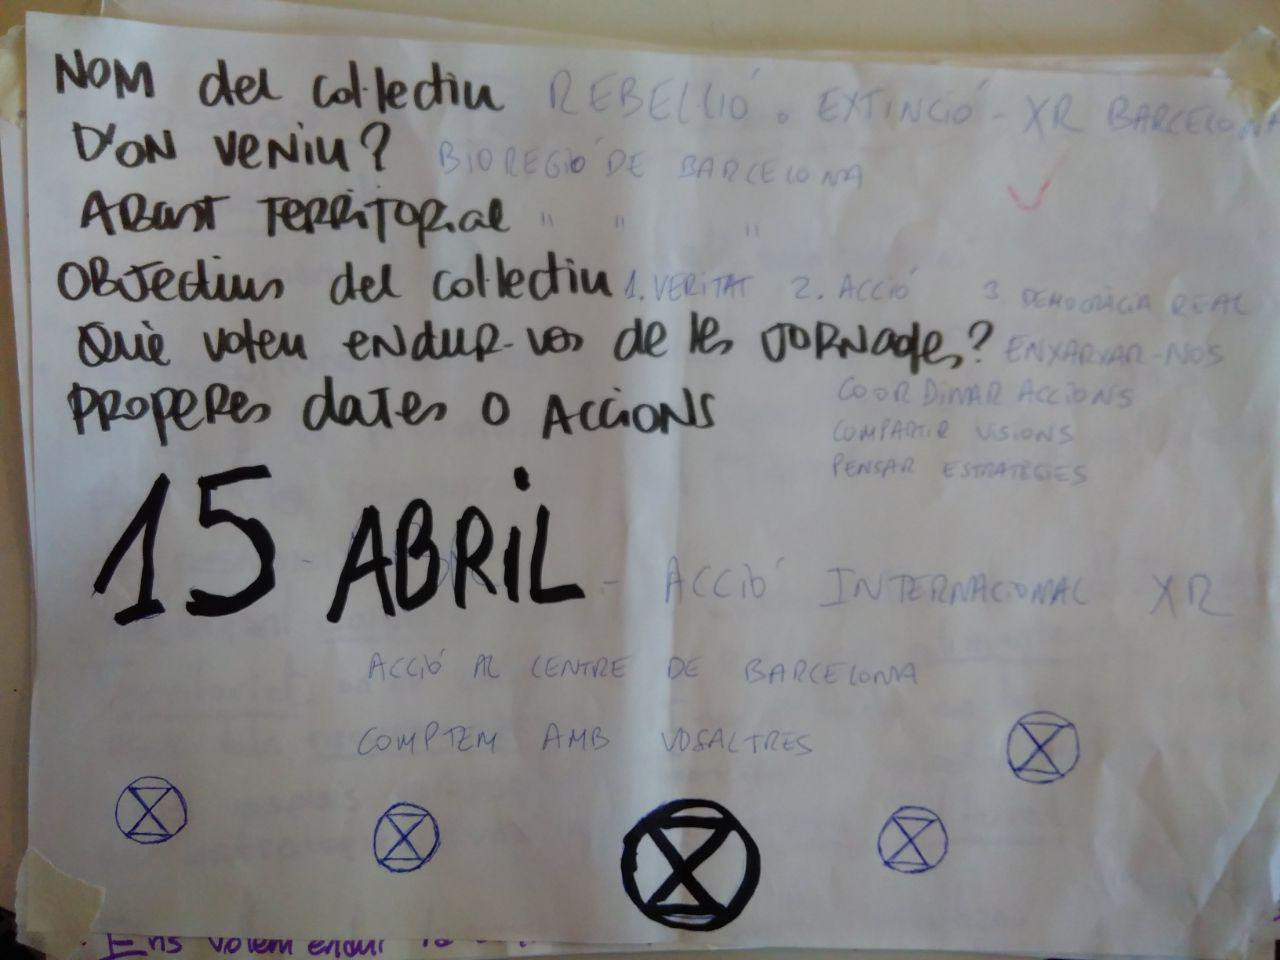 NOM del col·lectiu REBEL·LIÓ o EXTINCIÓ - XR BARCELONA
D'ON VENIU? BIOREGIÓ DE BARCELONA
ABAST TERRITORIAL " " "
OBJECTIUS del col·lectiu 1. VERITAT 2. ACCIÓ 3. DEMOCRÀCIA REAL
Què voleu endur-vos de les JORNADES? ENXARXAR-NOS
COORDINAR ACCIONS
COMPARTIR VISIONS
PENSAR ESTRATÈGIES
PROPERES dates o ACCIONS
15 ABRIL - ACCIÓ INTERNACIONAL XR
ACCIÓ AL CENTRE DE BARCELONA
COMPTEM AMB VOSALTRES
Ens volem endur